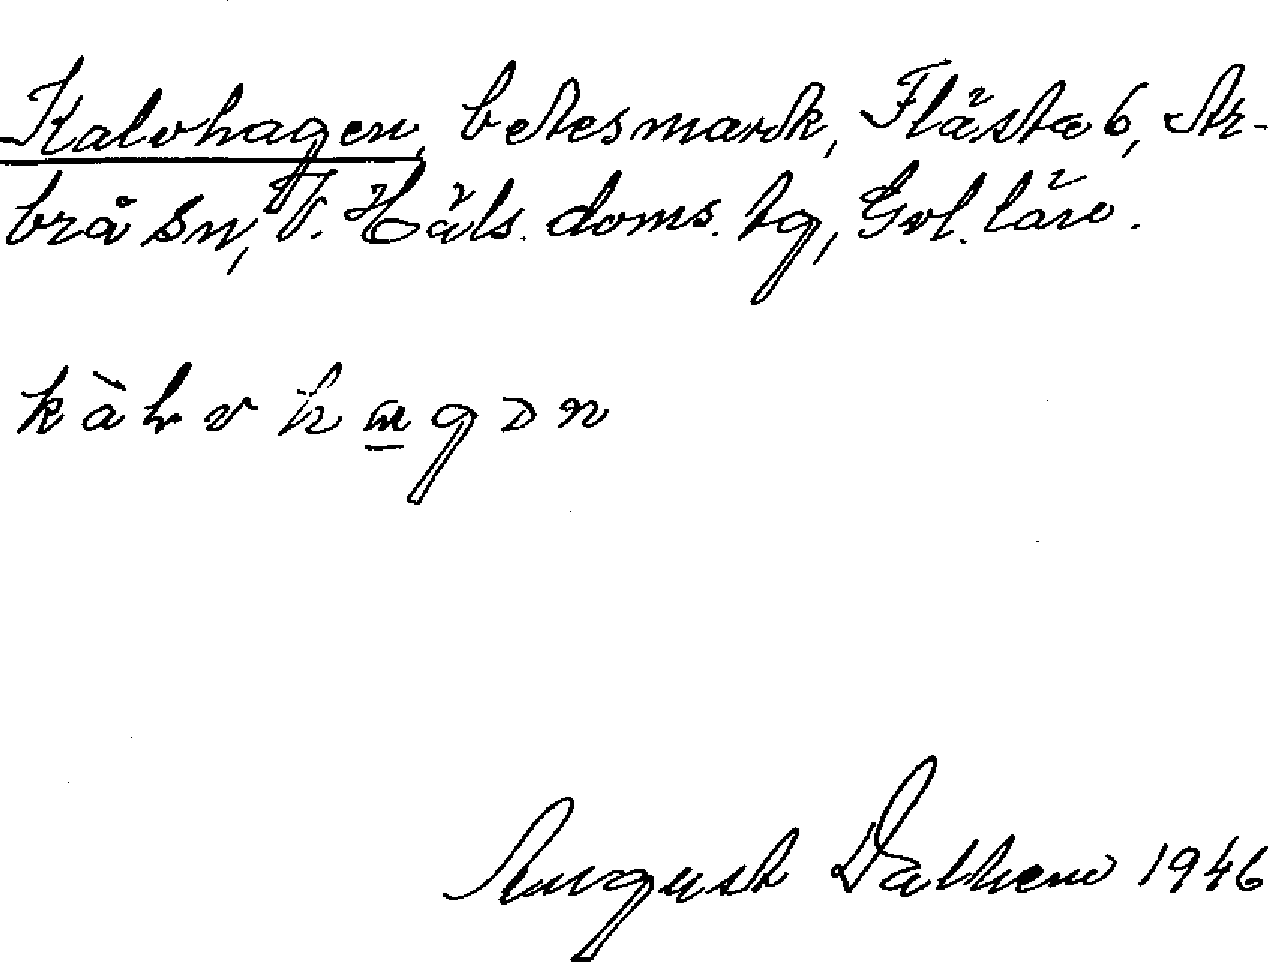 Kalvhagen, betesmark, Flästa 6, Ar-
brå sn, V. Häls. doms. tg, Gvl. län.
kàlvhagən
August Dalhem 1946